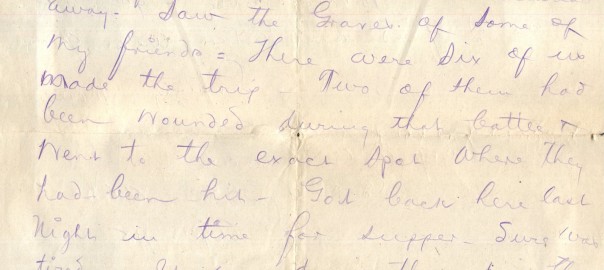 away - Saw the Graves of some of
my friends = There were Six of us
made the trip - Two of them had
been wounded during that battle &
Went to the exact spot where they
had been hit - Got back here last
Night in time for supper - Sure was
tired